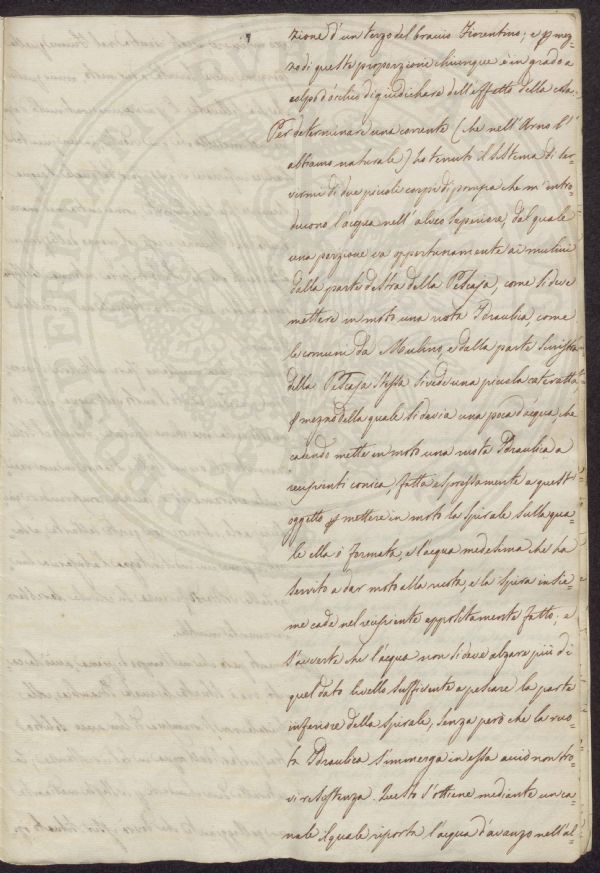 zione d'un terzo del braccio Fiorentino; e p mez-
zo di queste proporzione chiunque è in grado a
colpo d'occhio di giudichare dell'effetto della cosa.
Per determinare una corrente (che nell'Arno l'
abbiamo naturale) ho tenuto il sistema di ser-
virmi di due piccoli corpi di pompa che m'intro-
ducono l'acqua nell'alveo superiore, dal quale
una porzione va opportunamente ai mulini
dalla parte destra della Pescaja, come si deve
mettere in moto una ruota Idraulica, come
le comuni da Mulino, e dalla parte sinistra
della Pescaja stessa si vede una piccola cateratta
p mezzo della quale si davia una poca d'acqua, che
cadendo mette in moto una ruota Idraulica a
recipienti conica, fatta espressamente a quest'
oggetto p mettere in moto la spirale sulla qua-
le ella è formata, e l'acqua medesima che ha
servito a dar moto alla ruota, e la spira insie-
me cade nel recipiente appositamente fatto; e
s'averte che l'acqua non si deve alzare più di
quel dato livello sufficente a pescare la parte
inferiore della spirale, senza però che la ruo-
ta Idraulica s'immerga in essa acciò non tro-
vi resistenza. Questo s'ottiene mediante un ca-
nale il quale riporta l'acqua d'avanzo nell'al-